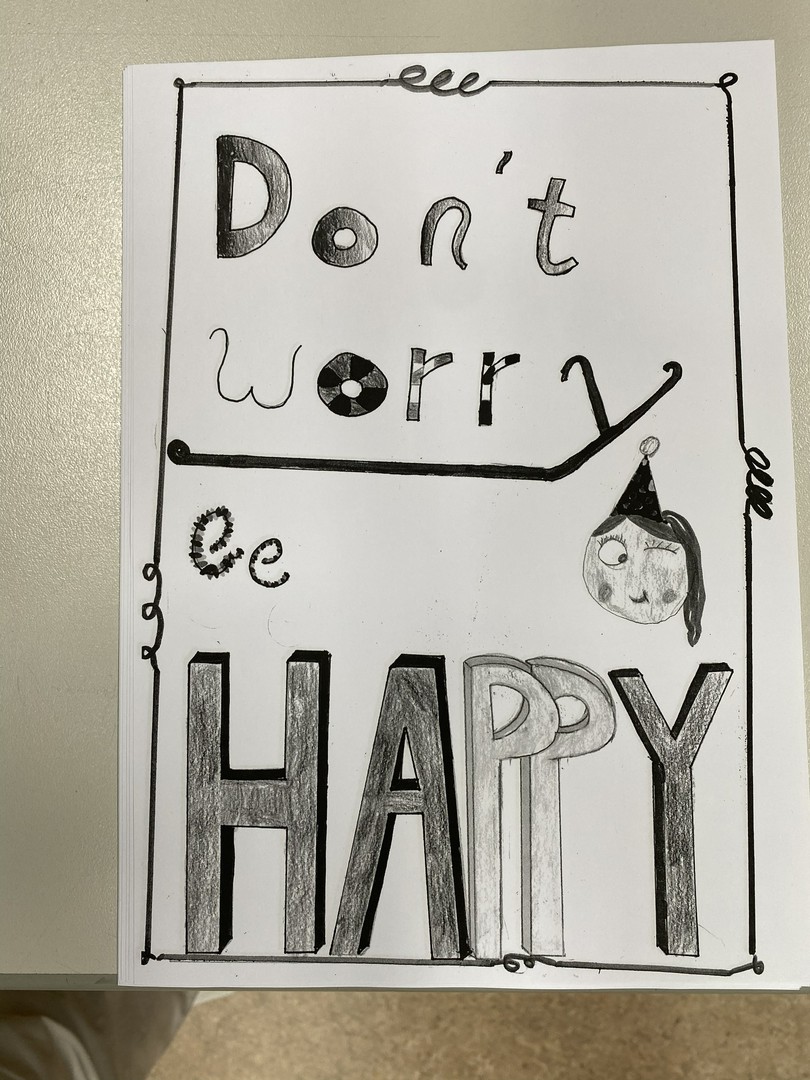 Don't
worry
be
HAPPY